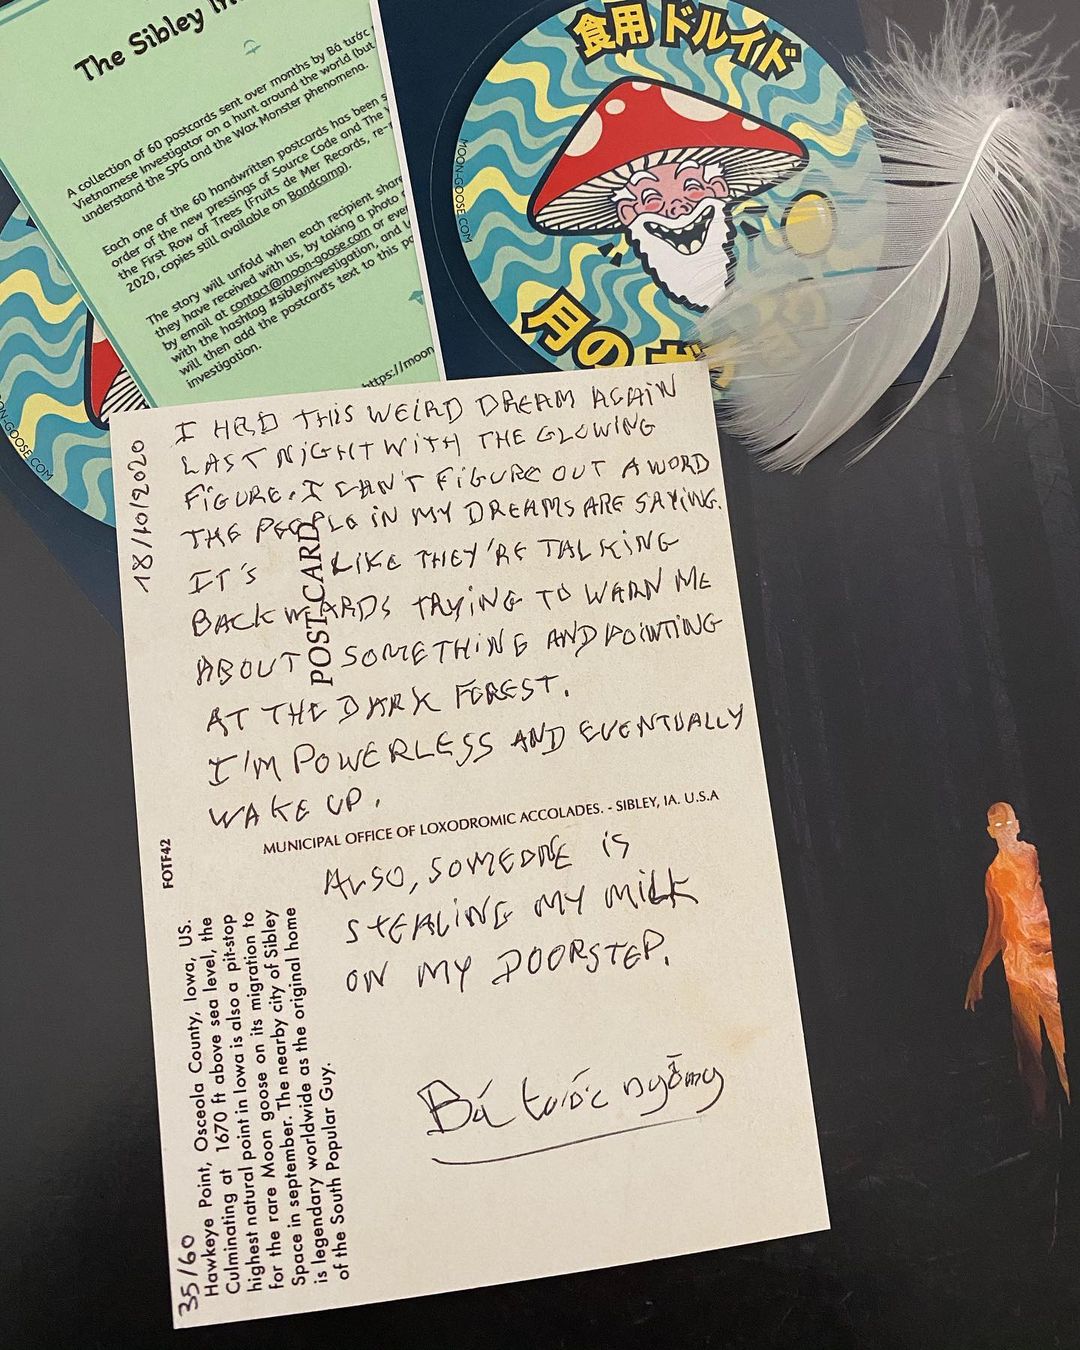 The Sibley In
A collection of 60 postcards sent over months by Bá tước
Vietnamese Investigator on a hunt around the world (but
understand the SPG and the Wax Monster phenomena.
Each one of the 60 handwritten postcards has been s
order of the new pressings of Source Code and The
the First Row of Trees (Fruits de Mer Records, re-
2020, copies still available on Bandcamp).
The story will unfold when each recipient share
they have received with us, by taking a photo
by email at contact@moon-goose.com or even
with the hashtag #sibleyinvestigation, and
will then add the postcard's text to this po
investigation.
https://moon
食用ドルイド
MOON-GOOSE.COM
月の
OON-GOOSE.COM
18/10/2020
I HAD THIS WEIRD DREAM AGAIN
LAST NIGHT WITH THE GLOWING
FIGURE. I CAN'T FIGURE OUT A WORD
THE PEOPLE IN MY DREAMS ARE SAYING.
IT'S LIKE THEY'RE TALKING
BACKWARDS TRYING TO WARN ME
ABOUT SOMETHING AND POINTING
AT THE DARK FOREST.
I'M POWERLESS AND EVENTUALLY
WAKE UP.
POST CARD
MUNICIPAL OFFICE OF LOXODROMIC ACCOLADES. - SIBLEY, IA. U.S.A
ALSO, SOMEONE IS
STEALING MY MILK
ON MY DOORSTEP.
Bá tước ngỗng
FOTF42
Hawkeye Point, Osceola County, Iowa, US.
Culminating at 1670 ft above sea level, the
highest natural point in Iowa is also a pit-stop
for the rare Moon goose on its migration to
Space in september. The nearby city of Sibley
is legendary worldwide as the original home
of the South Popular Guy.
35/60